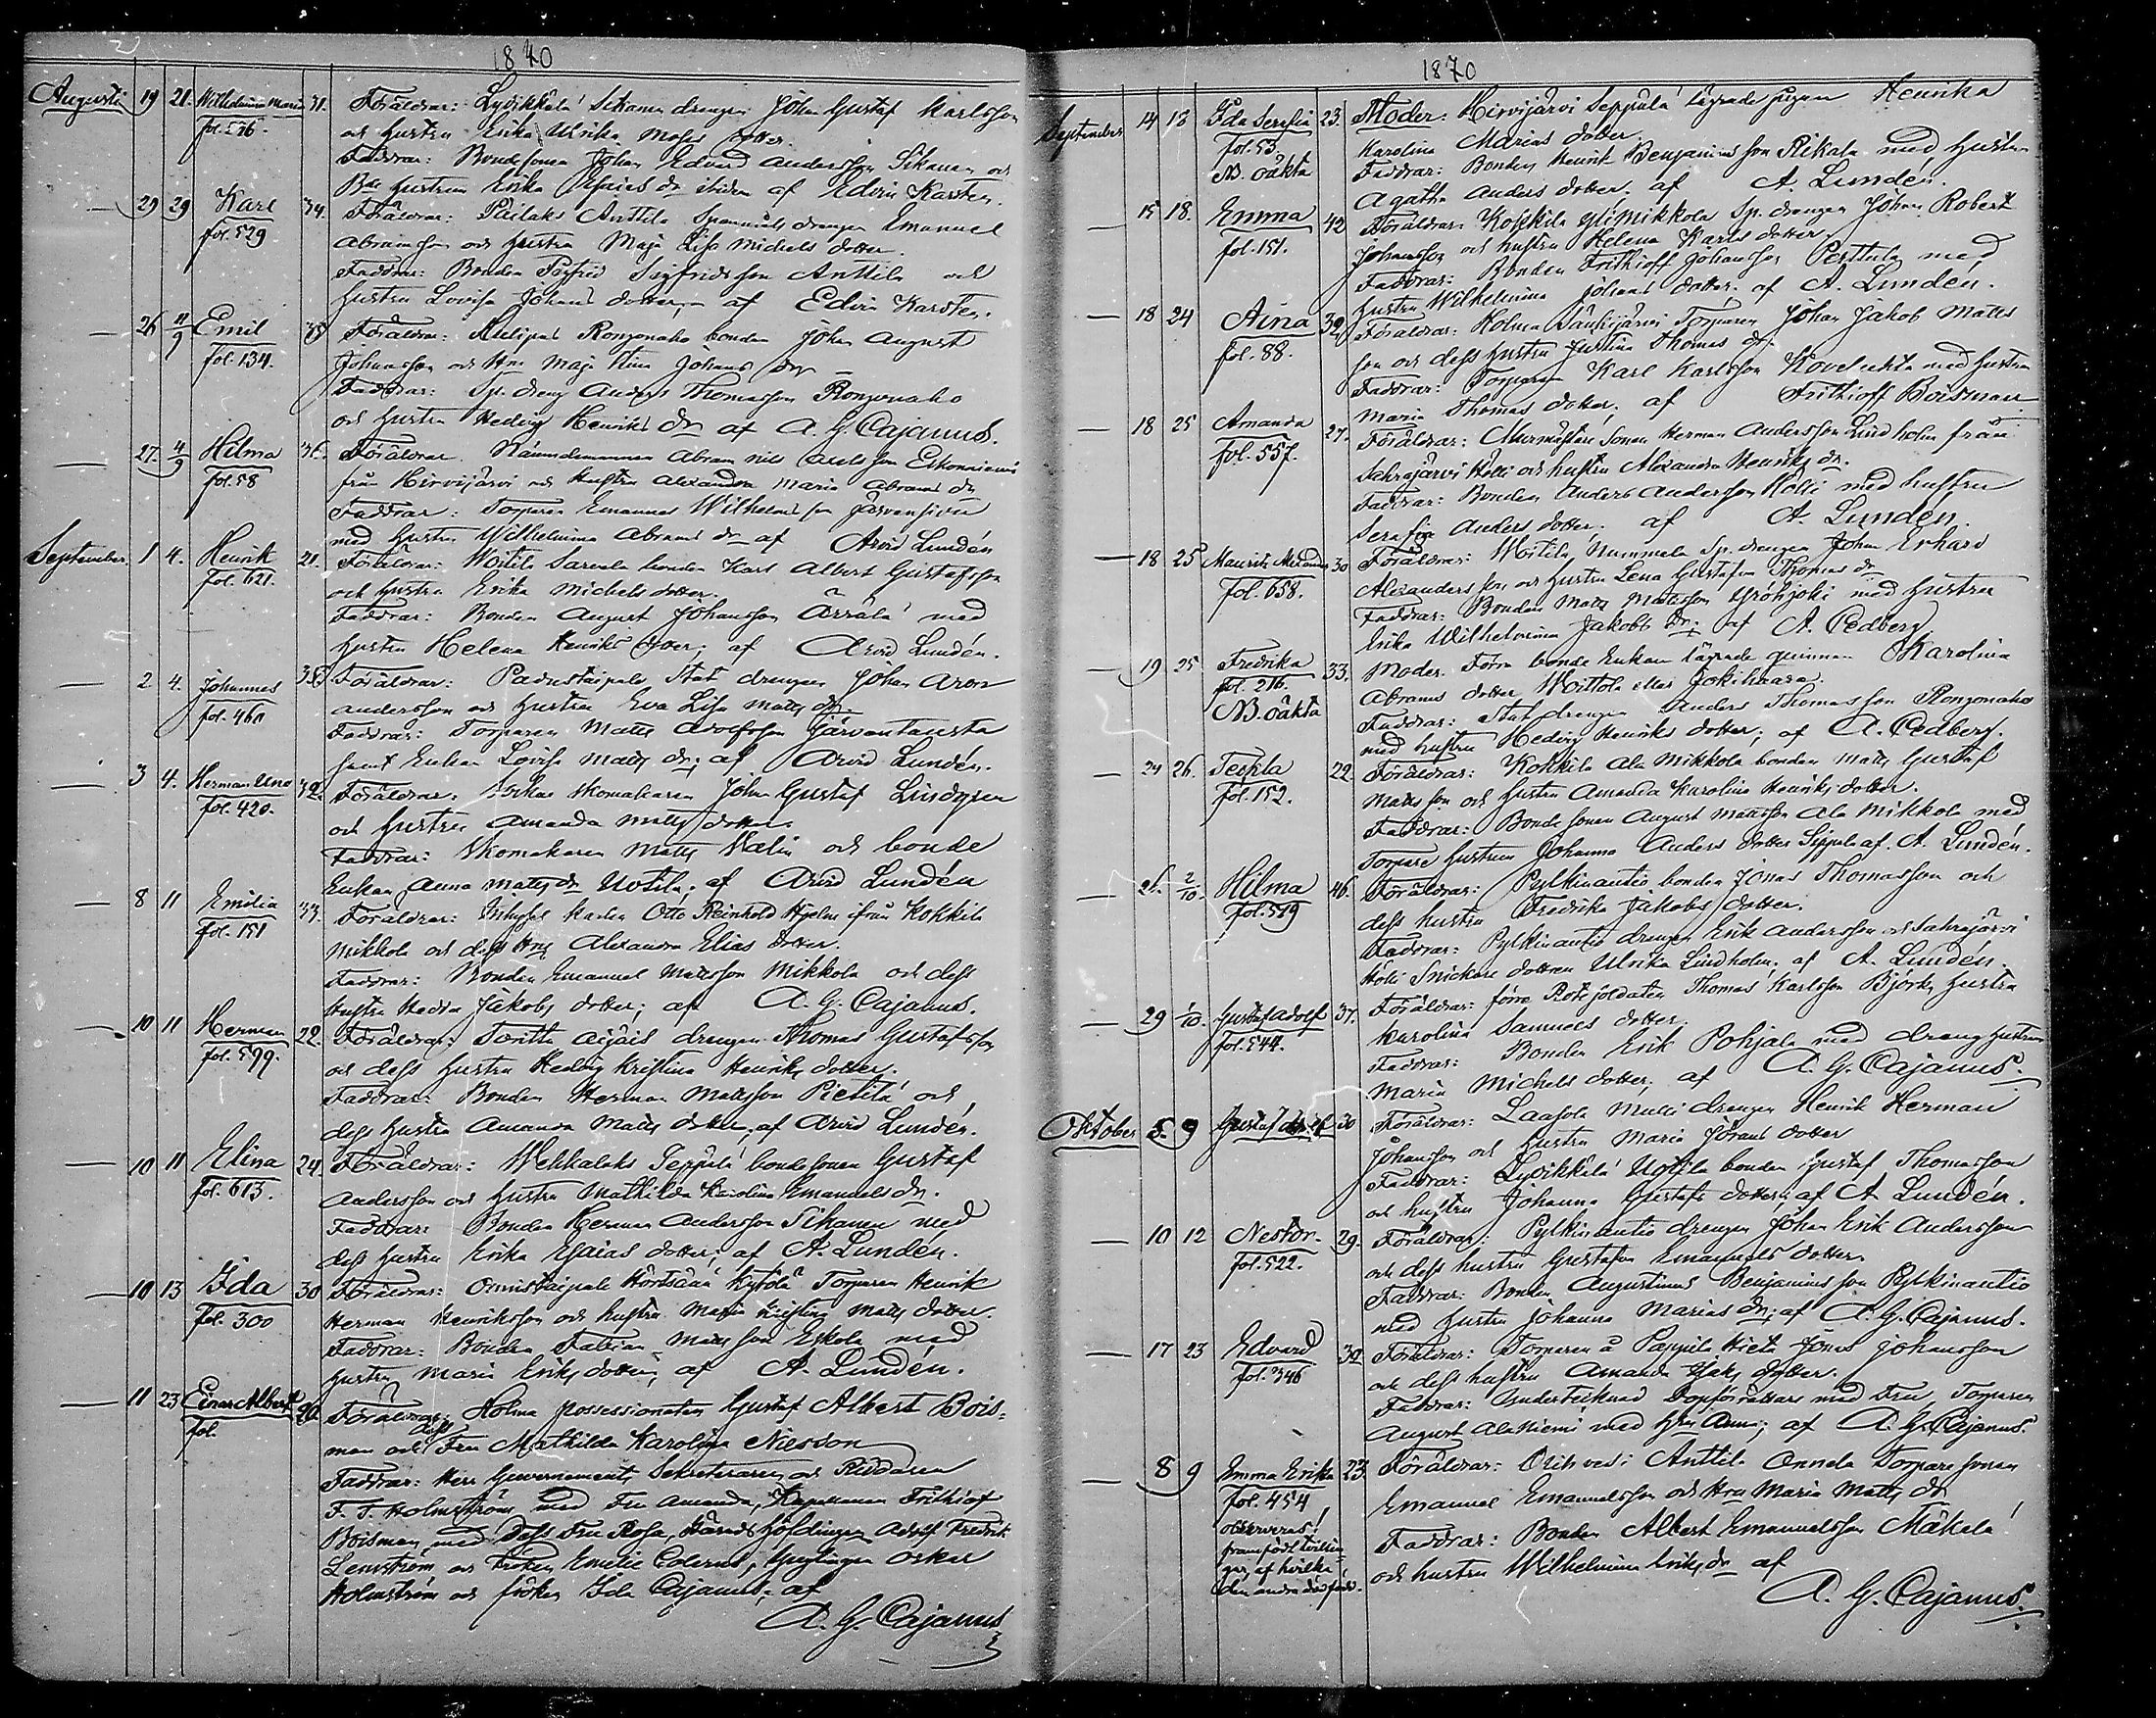 1870
Augusti 19 21. Wilhelmina Maria 31. Föräldrar: Lyöikkälä Sikanen drengen Johan Gustaf Karlsson
fol. 576. och hustru Erika Ulrika Moses dotter.
Faddrar: Bondesonen Johan Edvard Andersson Sikanen och
hustrun Erika Esaias dr ibidem af Edvin Karsten.
29 29 Karl 34. Föräldrar: Anttila drengen Emanuel
fol. 529 Abramsson och hustru Maja Lisa Michels dotter.
Faddrar: Bonden Sigfrid Sigfridsson Anttila och
hustru Lovisa Johans dotter, af Edvin Karsten.
26 11/9 Emil 38 Föräldrar: Ronzonaho bonden Johan August
fol. 134. Johansson och Hru Maja Stina Johans dr
Faddrar: Sp. dreng Anders Thomasson Ronzonaho
och hustru Hedvig Henriks dr af A. G. Cajanus.
27. 4/9 Hilma 36. Föräldrar: Nämndemannen Abram Axelsson Eskonniemi
fol. 58 från Hirvijärvi och Hustru Alexandra Maria Abrams dr
Faddrar: Torparen Emanuel Wilhelmsson Järvensivu
med hustru Wilhelmina Abrams dr af Arvid Lundén
September 1 4. Henrik 21. Föräldrar: Woitila Sarvala bonden Karl Albert Gustafsson
fol. 621. och hustru Erika Michels dotter.
Faddrar: Bonden August Johansson Ärrälä med
hustru Helena Henriks dotter; af Arvid Lundén.
2 4. Johannes 38. Föräldrar: Padustaipale Stat drengen Johan Aron
fol. 460 Andersson och hustru Eva Lisa Matts dr.
Faddrar: Torparen Matts Adolfsson Järvantausta
samt Enkan Lovisa Matts dr; af Arvid Lundén.
3 4. Herman Uno 32. Föräldrar: Skomakaren Johan Gustaf Lindgren
fol. 420. och hustru Amanda Matts dotter.
Faddrar: Skomakaren Matts Walin och bonde
Enkan Anna Matts dr Uotila; af Arvid Lundén
8 11 Emilia 33. Föräldrar: Inhyses karlen Otto Reinhold Hjelm ifrån Kokkila
fol. 151 Mikkola och dess Hru Alexandra Elias dotter.
Faddrar: Bonden Emanuel Mattsson Mikkola och dess
Hustru Hedda Jakobs dotter; af A. G. Cajanus.
10 11 Herman 22 Föräldrar: Toritto Äijäis drengen Thomas Gustafsson
fol. 599. och dess hustru Hedvig Kristina Henriks dotter.
Faddrar: Bonden Herman Mattsson Pietilä och
dess hustru Amanda Matts dotter; af Arvid Lundén.
10 11 Elina 24 Föräldrar: Wehkalaks Seppälä bondesonen Gustaf
fol. 613. Andersson och hustru Mathilda Karolina Emanuels dr.
Faddrar: Bonden Herman Andersson Sikanen med
dess hustru Erika Esaias dotter; af A. Lundén.
10 13 Ida 30 Föräldrar: Onnistaipale Torparen Henrik
fol. 300 Herman Henriksson och hustru Maria Kristina Matts dotter.
Faddrar: Bonden Fabian Mattsson Eskola med
hustru Maria Eriks dotter; af A. Lundén.
11 23 Einar Albert 26 Föräldrar: Holma possessionaten Gustaf Albert Bois=
fol. man och dess Fru Mathilda Karolina Nilsson
Faddrar: Herr Guvernements Sekreteraren och Riddaren
F. T. Holmström med Fru Amanda, Kapetenen Frithiof
Boisman med Dess Fru Rosa, Häradshöfdingen Adolf Fredrik
Lenström och fröken Emelie Colerus, Ynglingen Oskar
Holmström och fröken Ida Cajanus; af
A. G. Cajanus
1870
September 14 18 Ida Serafia 23. Moder: Hirvijärvi Seppälä lägrade pigan Henrika
fol. 53. Karolina Marias dotter.
NB. oäkta Faddrar: Bonden Henrik Benjaminsson Rikala med hustru
Agatha Anders dotter. af A. Lundén.
15 18. Emma 42 Föräldrar: Kokkila Yli Mikkola Sp. drengen Johan Robert
fol. 151. Johansson och hustru Helena Karls dotter.
Faddrar: Bonden Frithioff Johansson Perttula med
hustru Wilhelmina Johans dotter. af A. Lundén.
18 24 Aina 32 Föräldrar: Holma Torparen Johan Jakob Matts
fol. 88. son och dess hustru Justina Thomas dr.
Faddrar: Torparen Karl Karlsson med hustru
Maria Thomas dotter; af Frithioff Boisman
18 25 Amanda 27. Föräldrar: Murmästare Sonen Herman Andersson Lindholm från
fol. 557. Sahrajärvi Holli och hustru Alexandra Henriks dr.
Faddrar: Bonden Anders Andersson Holli med hustru
Serafia Anders dotter; af A. Lundén.
18 25 Mauritz Alexander 30 Föräldrar: Woitila Nummela Sp. drengen Johan Erhard
fol. 658. Alexandersson och hustru Lena Gustafva Thomas dr
Faddrar: Bonden Matts Mattsson Yröhjoki med hustru
Erika Wilhelmina Jakobs dr; af A. Cedberg
19 25 Fredrika 33. Moder. Förra bonde Enkan lägrade qvinnan Karolina
fol. 216. Abrams dotter Woittola eller Jokihaara.
NB. oäkta Faddrar: Stat drengen Anders Thomasson Ronzonaho
med hustru Hedvig Henriks dotter; af A. Cedberg.
24 26. Teckla 22. Föräldrar: Kokkila Ala Mikkola bonden Matts Gustaf
fol. 152. Mattsson och hustru Amanda Karolina Henriks dotter.
Faddrar: Bonde sonen August Mattsson Ala Mikkola med
Torpare hustrun Johanna Anders dotter Seppälä af. A. Lundén.
26. 2/10. Hilma 46. Föräldrar: Pylkinautio bonden Jonas Thomasson och
fol. 519 dess hustru Fredrika Jakobs dotter.
Faddrar: Pylkinautio drengen Erik Andersson och Sahrajärvi
Holli Snickare dottren Ulrika Lindholm. af A. Lundén.
29 1/10. Gustaf Adolf 37. Föräldrar: förre Rotesoldaten Thomas Karlsson Björk, hustru
fol. 544. Karolina Samuels dotter
Faddrar: Bonden Erik Pohjala med dreng hustrun
Maria Michels dotter; af A. G. Cajanus.
Oktober 5. 9 Gustaf 30 Föräldrar: Laasola Mulli drengen Henrik Herman
Johansson och hustru Maria Jörans dotter
Faddrar: Lyöikkälä Uotila bonden Gustaf Thomasson
och hustru Johanna Gustafs dotter; af A. Lundén.
10 12 Nestor. 29. Föräldrar: Pylkinautio drengen Johan Erik Andersson
fol. 522. och dess hustru Gustafva Emanuels dotter
Faddrar: Bonden Augustinus Benjaminsson Pylkinautio
med hustru Johanna Marias dr; af A. G. Cajanus.
17 23 Edvard 32 Föräldrar: Torparen å Pappila Hieta Jonas Johansson
fol. 346 och dess hustru Amanda Isaks dotter.
Faddrar: Undertecknad Dopförrättare med Fru, Torparen
August Ala Niemi med Hru Anna; af A. G. Cajanus.
8 9 Emma Erika 23. Föräldrar: Orihvesi Anttila Onnela Torpare sonen
fol. 454 Emanuel Emanuelsson och Hru Maria Matts dr
observeras! Faddrar: Bonden Albert Emanuelsson Mäkelä
framfödt tvillin=
gar, af hvilka och hustru Wilhelmina Eriks dr af
den andra dödfödd. A. G. Cajanus.